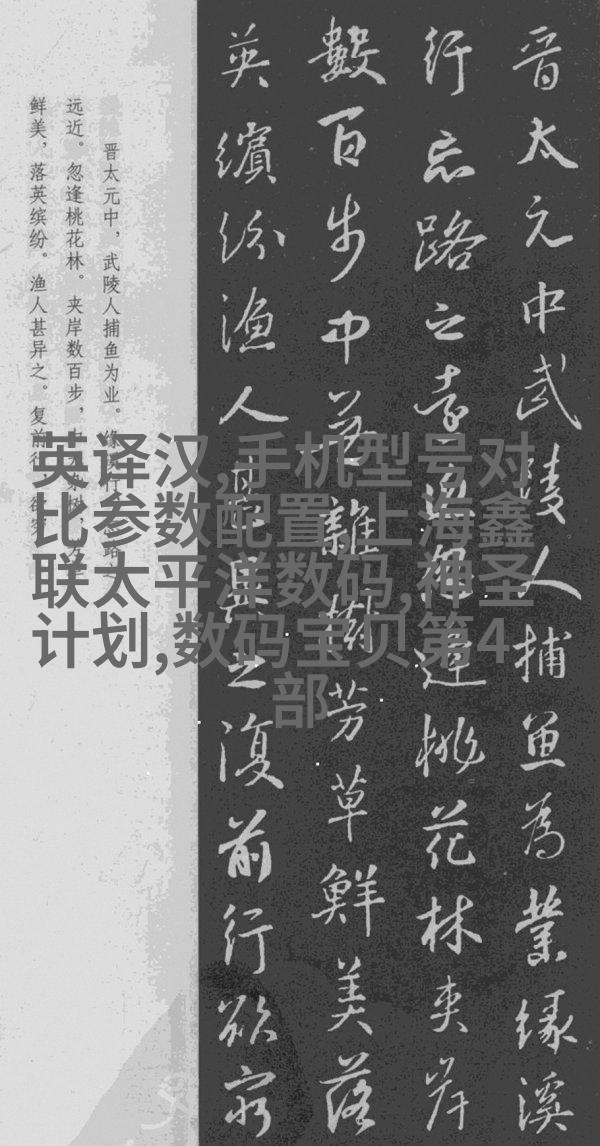 晋太元中武陵人捕魚為業缘溪
行忘路之遠近忽逢桃花林夾岸
數百步中無雜樹芳草鮮美落
英繽紛漁人甚異之復前行欲窮
晋太元中，武陵人捕鱼为业。缘溪行，忘路之
远近。忽逢桃花林。夹岸数百步，中无杂树，芳草
鲜美，落英缤纷。渔人甚异之。复前行，欲穷
英译汉,手机型号对
比参数配置,上海鑫
联太平洋数码,神圣
计划,数码宝贝第4
部